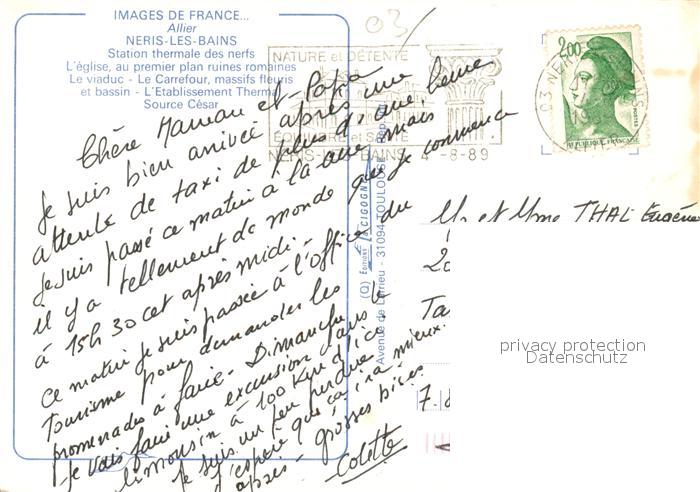 IMAGES DE FRANCE...
Allier
NERIS-LES-BAINS
Station thermale des nerfs
L'église, au premier plan ruines romaines
Le viaduc - Le Carrefour, massifs fleuris
et bassin - L'Etablissement Therma
Source César
03
NATURE et DÉTENTE
ÉQUILIBRE et SANTÉ
NERIS-LES-BAINS 4-8-89
2,00
POSTES
REPUBLIQUE FRANÇAISE
Chère Maman et Papa
Je suis bien arrivée après une
attente de taxi de plus d'une heure
Je suis passé ce matin à la cure mais
il y a tellement de monde que je commence
à 15h30 cet après midi -
ce matin je suis passée à l'office du
Tourisme pour demander les
promenades à faire - Dimanche
je vais faire une excursion dans le
limousin à 100 Km d'ici.
Je suis un peu perdue
j'espère que ça ira mieux
après - grosses bises
Colette
(Q) Éditions LA CIGOGNE
Avenue de Larrieu - 31094 TOULOUSE
Mr et Mme THAL Eugène
20
Ta
privacy protection
Datenschutz